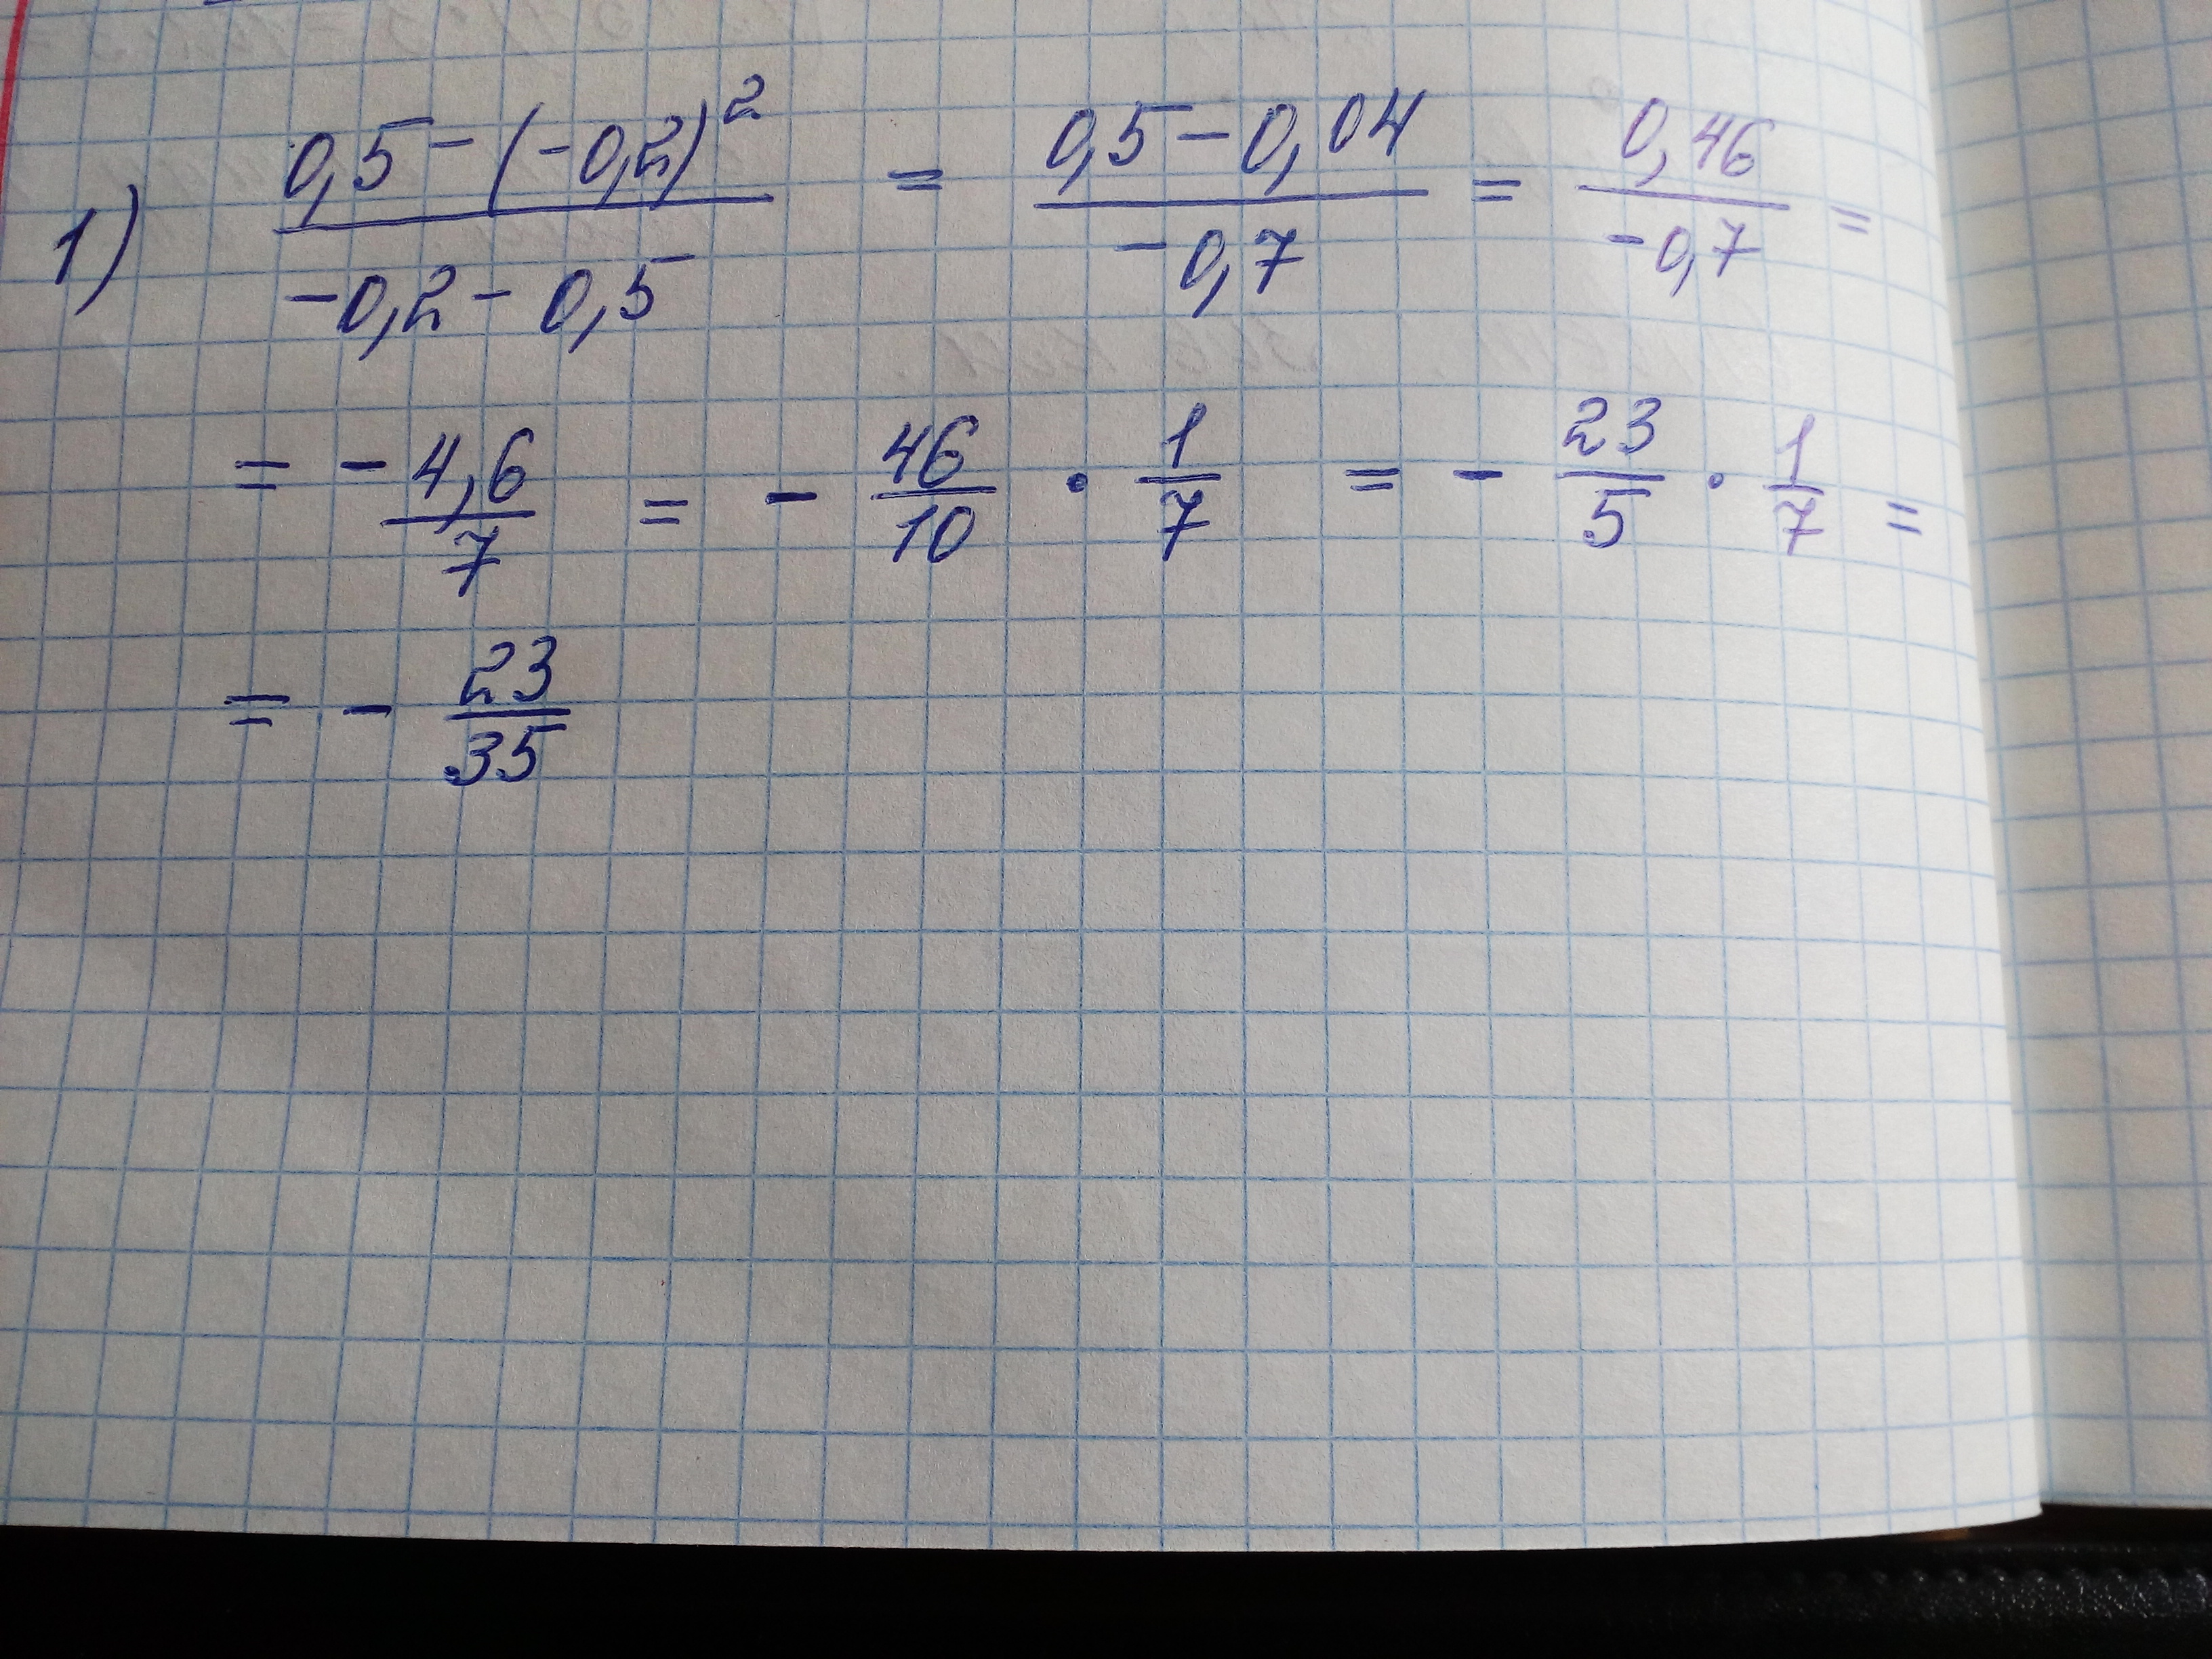 1) (0,5 - (-0,2)²)/(-0,2 - 0,5) = (0,5 - 0,04)/(-0,7) = 0,46/(-0,7) =
= - 4,6/7 = - 46/10 · 1/7 = - 23/5 · 1/7 =
= - 23/35